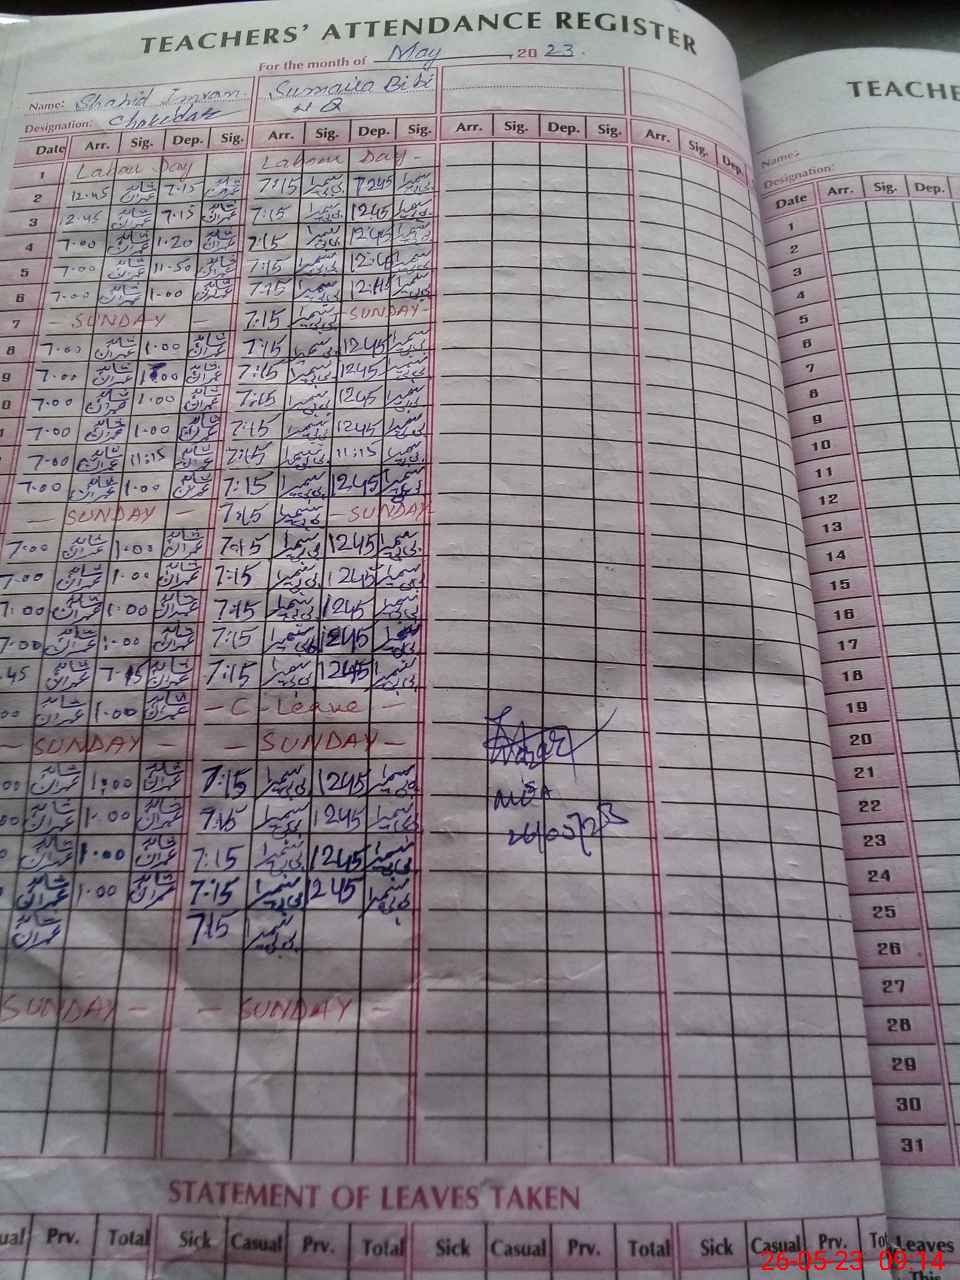 TEACHERS' ATTENDANCE REGISTER
For the month of May, 20 23.
TEACHE
Name: Shahid Imran Sumaira Bibi
Designation: Chokedar
Name:
Designation:
Date Arr. Sig. Dep. Sig. Arr. Sig. Dep. Sig. Arr. Sig. Dep. Sig. Arr. Sig. Dep.
Date Arr. Sig. Dep.
1 Labour Day Labour Day -
2 12.45 شاہد عمران 7.15 شاہد عمران 7:15 سمیرا بی بی 1245 سمیرا بی بی
3 12.45 شاہد عمران 7.15 شاہد عمران 7:15 سمیرا بی بی 1245 سمیرا بی بی
4 7.00 شاہد عمران 1.20 شاہد عمران 7:15 سمیرا بی بی 1245 سمیرا بی بی
5 7.00 شاہد عمران 11.50 شاہد عمران 7:15 سمیرا بی بی سمیرا بی بی
6 7.00 شاہد عمران 1.00 شاہد عمران 7:15 سمیرا بی بی 1245 سمیرا بی بی
7 - SUNDAY - 7:15 سمیرا بی بی - SUNDAY -
8 7.00 شاہد عمران 1.00 شاہد عمران 7:15 سمیرا بی بی 1245 سمیرا بی بی
9 7.00 شاہد عمران 1.00 شاہد عمران 7:15 سمیرا بی بی 1245 سمیرا بی بی
0 7.00 شاہد عمران 1.00 شاہد عمران 7:15 سمیرا بی بی 1245 سمیرا بی بی
7.00 شاہد عمران 1.00 شاہد عمران 7:15 سمیرا بی بی 1245 سمیرا بی بی
7.00 شاہد عمران 11:15 شاہد عمران 7:15 سمیرا بی بی 11:15 سمیرا بی بی
7.00 شاہد عمران 1.00 شاہد عمران 7:15 سمیرا بی بی 1245 سمیرا بی بی
- SUNDAY - 7:15 سمیرا بی بی - SUNDAY
7:00 شاہد عمران 1.00 شاہد عمران 7:15 سمیرا بی بی 1245 سمیرا بی بی
7.00 شاہد عمران 1.00 شاہد عمران 7:15 سمیرا بی بی 1245 سمیرا بی بی
7:00 شاہد عمران 1.00 شاہد عمران 7:15 سمیرا بی بی 1245 سمیرا بی بی
7:00 شاہد عمران 1.00 شاہد عمران 7:15 سمیرا بی بی 1245 سمیرا بی بی
.45 شاہد عمران 7.15 شاہد عمران 7:15 سمیرا بی بی 1245 سمیرا بی بی
00 شاہد عمران 1.00 شاہد عمران - C - Leave -
- SUNDAY - - SUNDAY -
00 شاہد عمران 1:00 شاہد عمران 7:15 سمیرا بی بی 1245 سمیرا بی بی
00 شاہد عمران 1.00 شاہد عمران 7:15 سمیرا بی بی 1245 سمیرا بی بی
شاہد عمران 1.00 شاہد عمران 7:15 سمیرا بی بی 1245 سمیرا بی بی
شاہد عمران 1.00 شاہد عمران 7:15 سمیرا بی بی 1245 سمیرا بی بی
شاہد عمران 715 سمیرا بی بی
SUNDAY - - SUNDAY -
MEA
26/05/23
1
2
3
4
5
6
7
8
9
10
11
12
13
14
15
16
17
18
19
20
21
22
23
24
25
26
27
28
29
30
31
STATEMENT OF LEAVES TAKEN
ual Prv. Total Sick Casual Prv. Total Sick Casual Prv. Total Sick Casual Prv. Tot Leaves
This
26-05-23 09:14